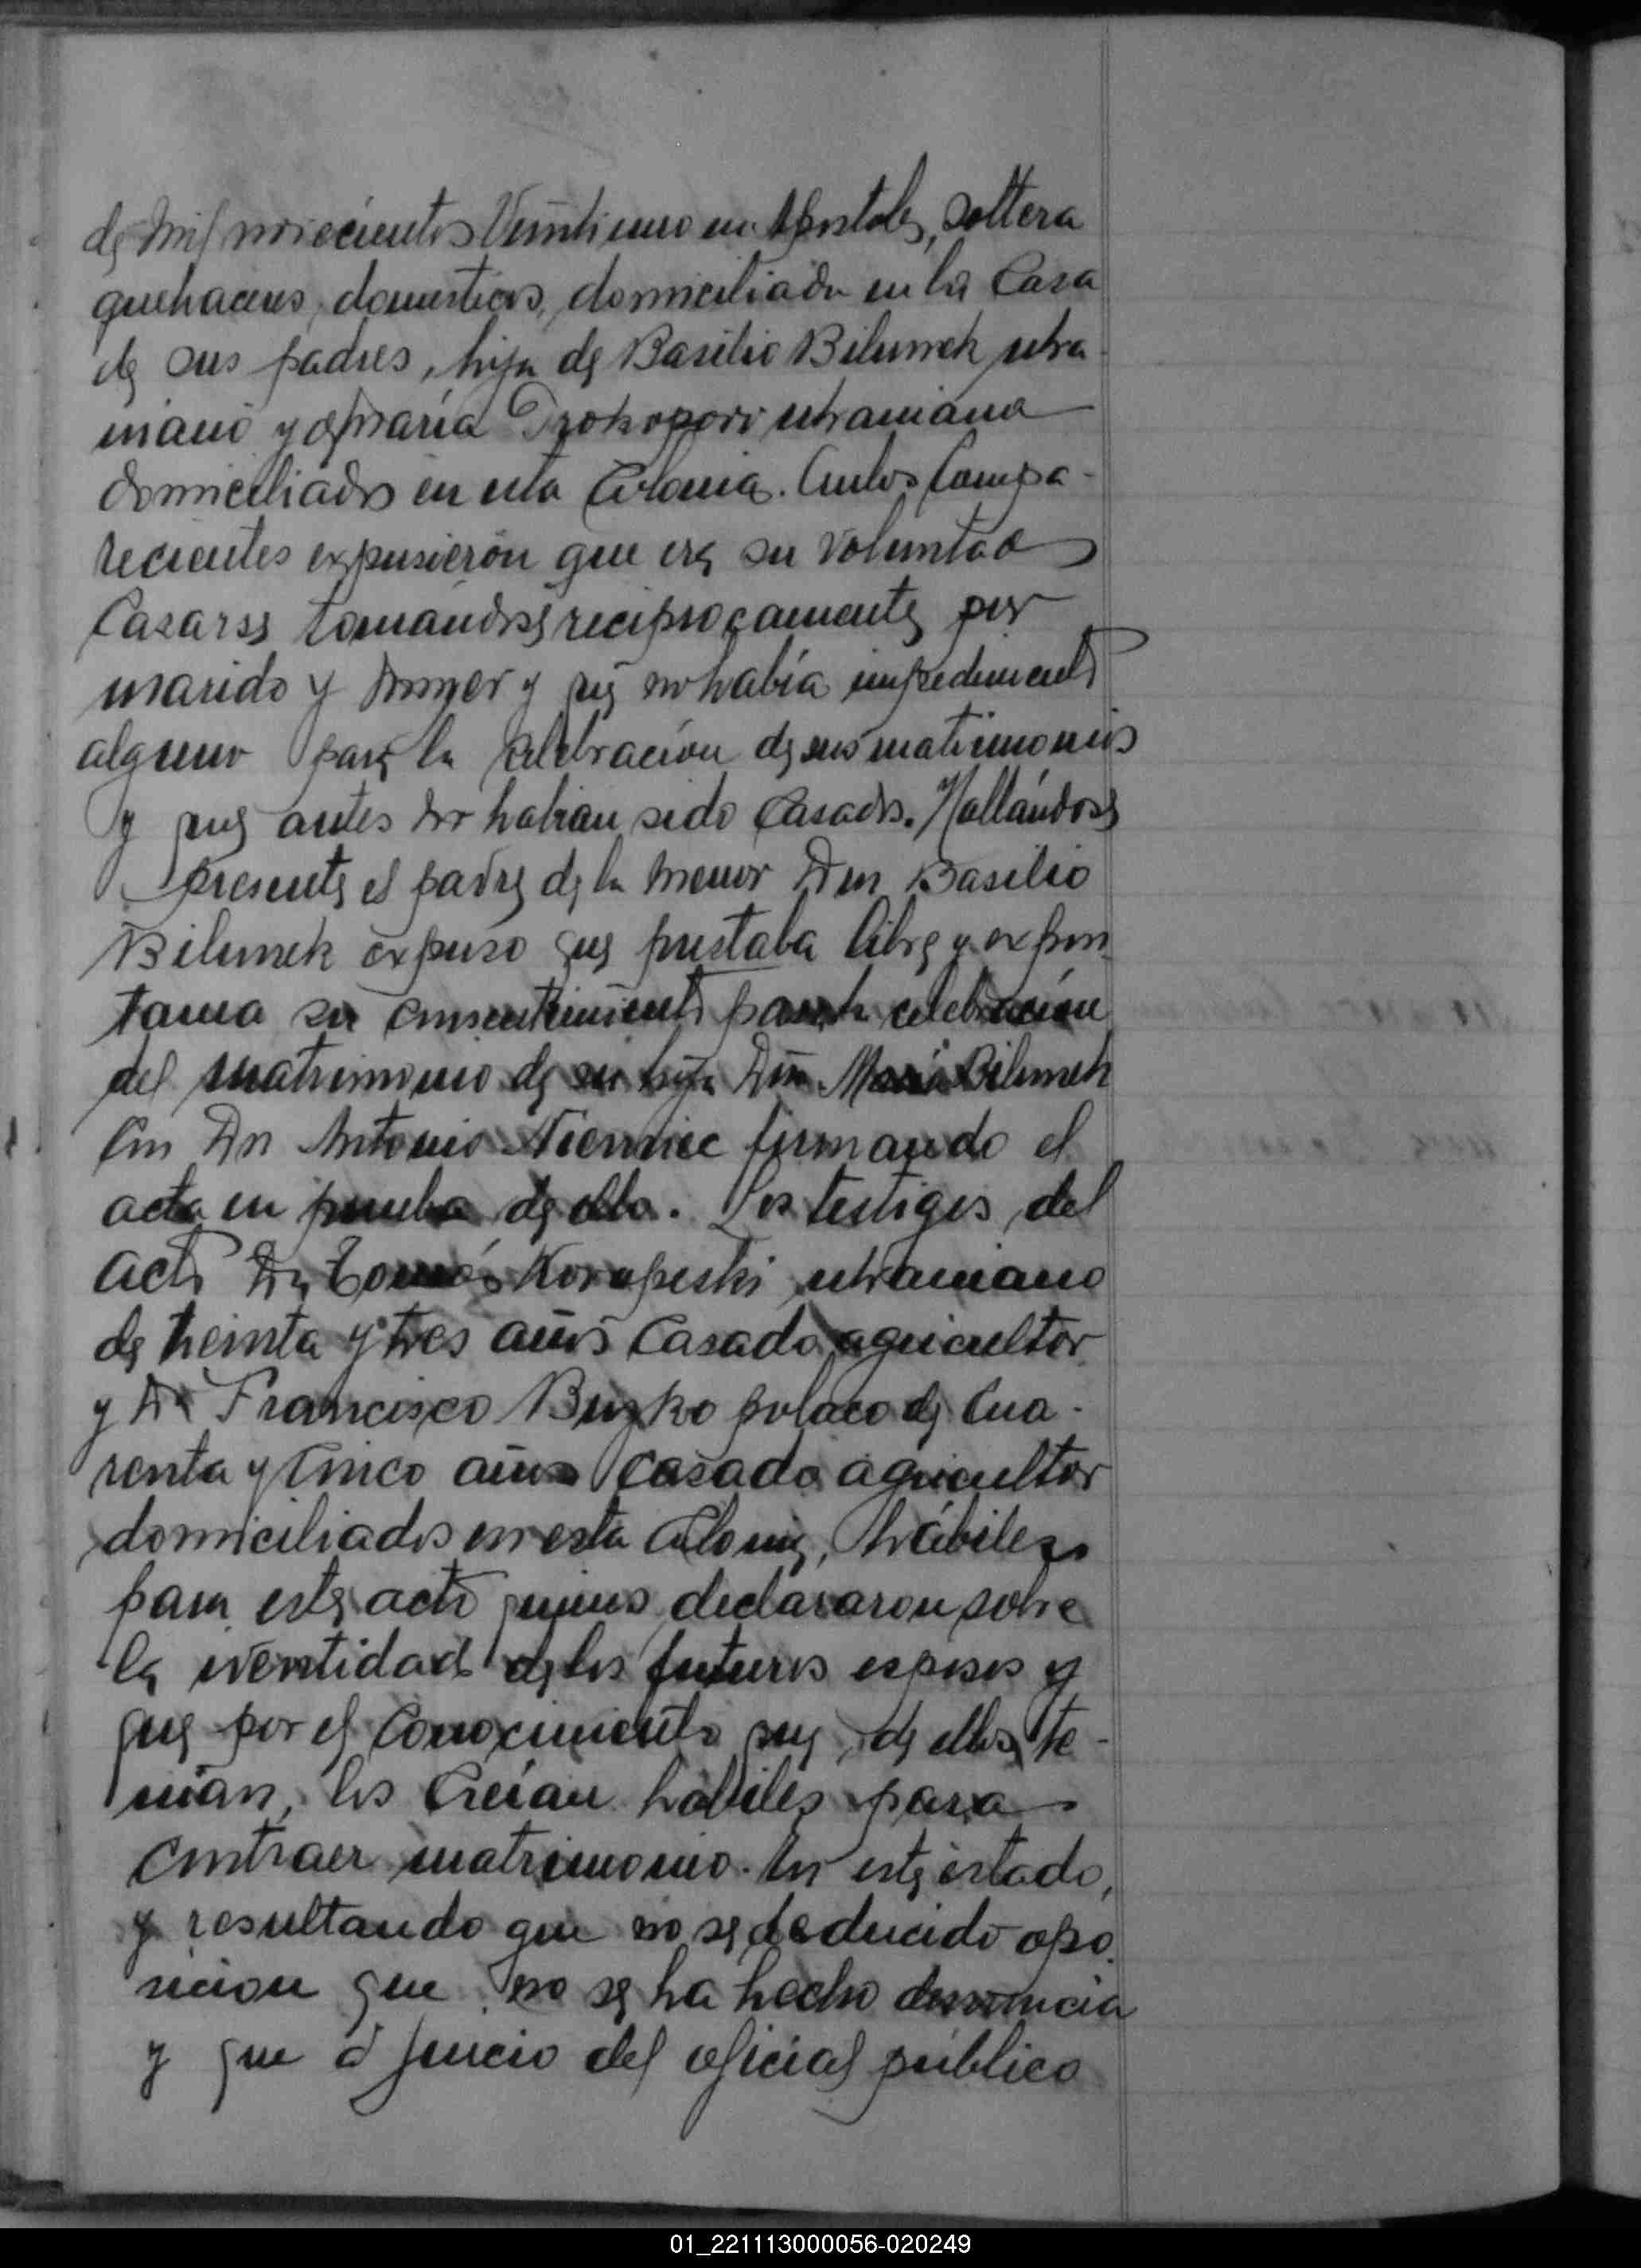 de mil noviecientos Veintiuno en Apostoles, Soltera
quehaceres, domesticos, domiciliada en la Casa
de sus padres, hija de Basilio Bilumek ukra
niano y de María Prokopovi ukraniana
domiciliados en esta Colonia. Ambos Compa-
recientes expusierón que era su voluntad
Casarse tomandose reciprocamente por
marido y mujer y que no había impedimento
alguno para la celebración de sus matrimonios
y que antes no habian sido Casados. Hallándose
presente el padre de la menor Don Basilio
Bilumek expuso que prestaba libre y expon
tanea su consentimiento para la celebración
del matrimonio de su hija Dña María Bilumek
Con Dn Antonio Niemiec firmando el
acta en prueba de ello. Los testigos del
acto Dn Tomás Korapeski ukraniano
de treinta y tres años Casado agricultor
y Dn Francisco Buzko polaco de Cua-
renta y Cinco años Casado agricultor
domiciliados en esta Colonia, hábiles
para este acto quienes declararon sobre
la identidad de los futuros esposos y
que por el Conocimiento que de ellos te-
nían, los Creían habiles para
Contraer matrimonio. En este estado,
y resultando que no se deducido opo
sicion que no se ha hecho denuncia
y que á juicio del oficial público
01_221113000056-020249